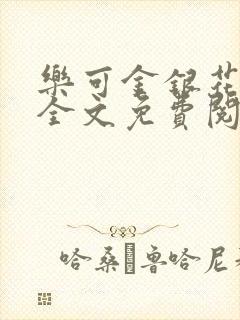 樂可金銀花
全文免費閱
哈桑·魯哈尼